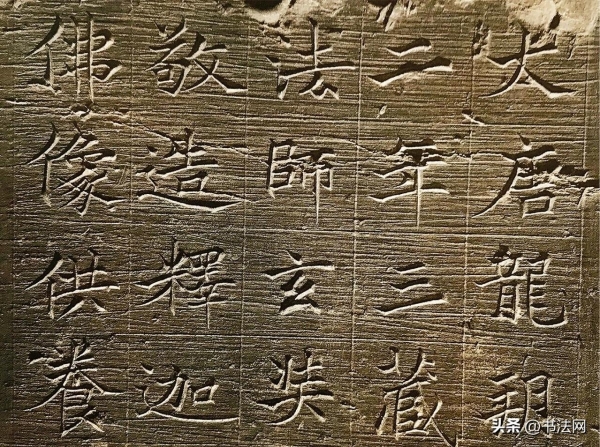 大唐龍朔
二年三藏
法師玄奘
敬造釋迦
佛像供養
头条@书法网